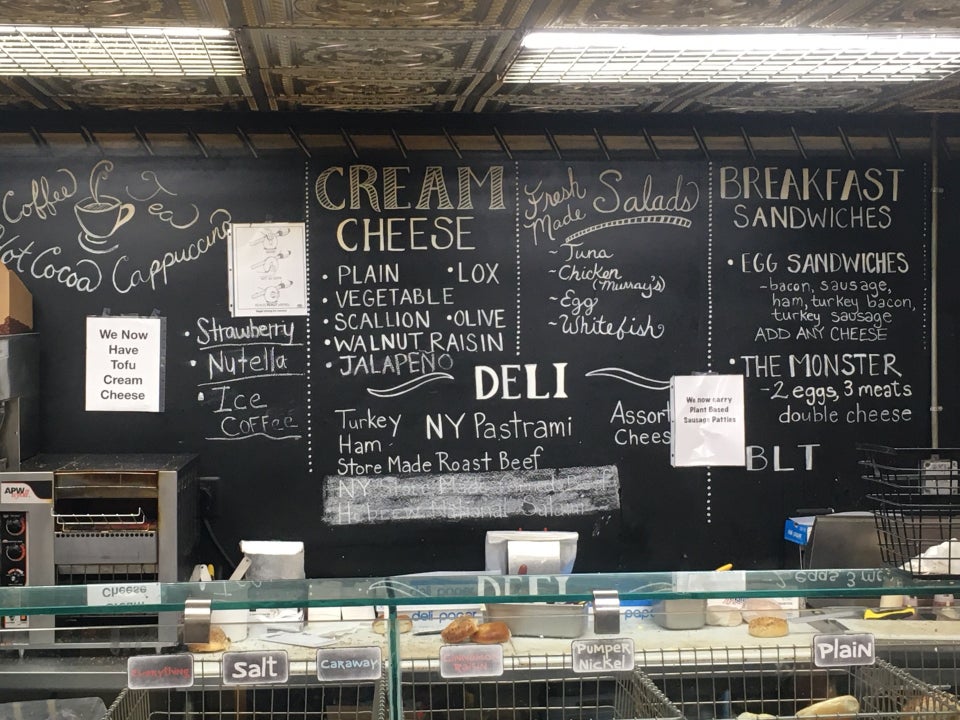 Coffee
Tea
Hot Cocoa Cappuccino
We Now
Have
Tofu
Cream
Cheese
• Strawberry
• Nutella
• Ice
Coffee
CREAM
CHEESE
• PLAIN • LOX
• VEGETABLE
• SCALLION • OLIVE
• WALNUT RAISIN
• JALAPEÑO
Fresh
Made Salads
~ Tuna
~ Chicken
(Murray's)
~ Egg
~ Whitefish
BREAKFAST
SANDWICHES
• EGG SANDWICHES
~ bacon, sausage,
ham, turkey bacon,
turkey sausage
ADD ANY CHEESE
• THE MONSTER
~ 2 eggs, 3 meats
double cheese
BLT
DELI
Turkey NY Pastrami
Ham
Store Made Roast Beef
NY Store Made
Hebrew National Salami
Assort
Chees
We now carry
Plant Based
Sausage Patties
APW
deli paper
Everything
Salt
CARAWAY
Cinnamon
Raisin
PUMPER
NICKEL
Plain